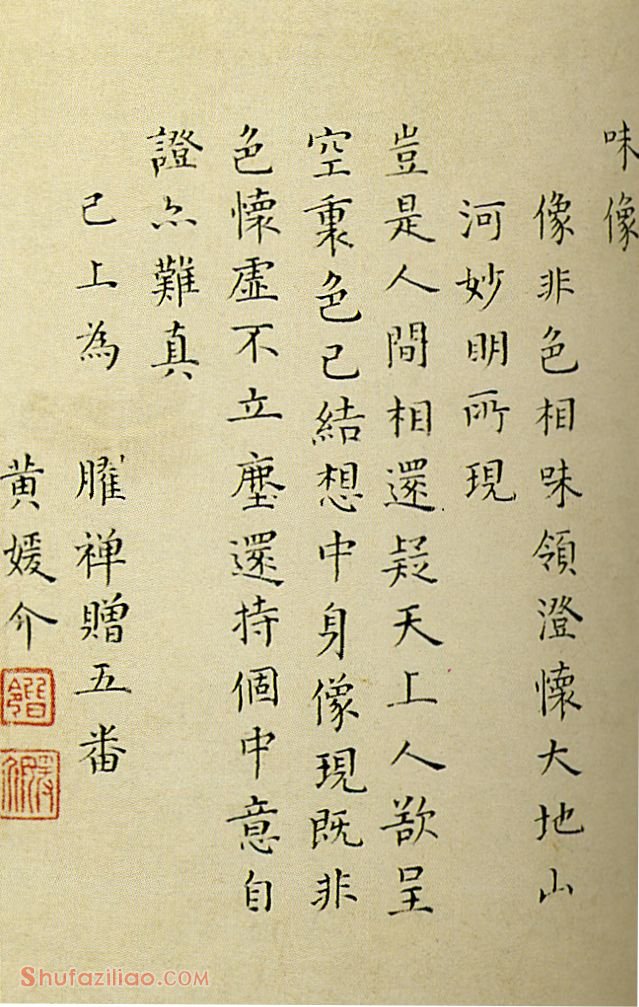 味像
像非色相味領澄懷大地山
河妙明所現
豈是人間相還疑天上人欲呈
空裏色已結想中身像現既非
色懷虛不立塵還持個中意自
證亦難真
已上為　臞禅贈五番
黄媛介
Shufaziliao.COM